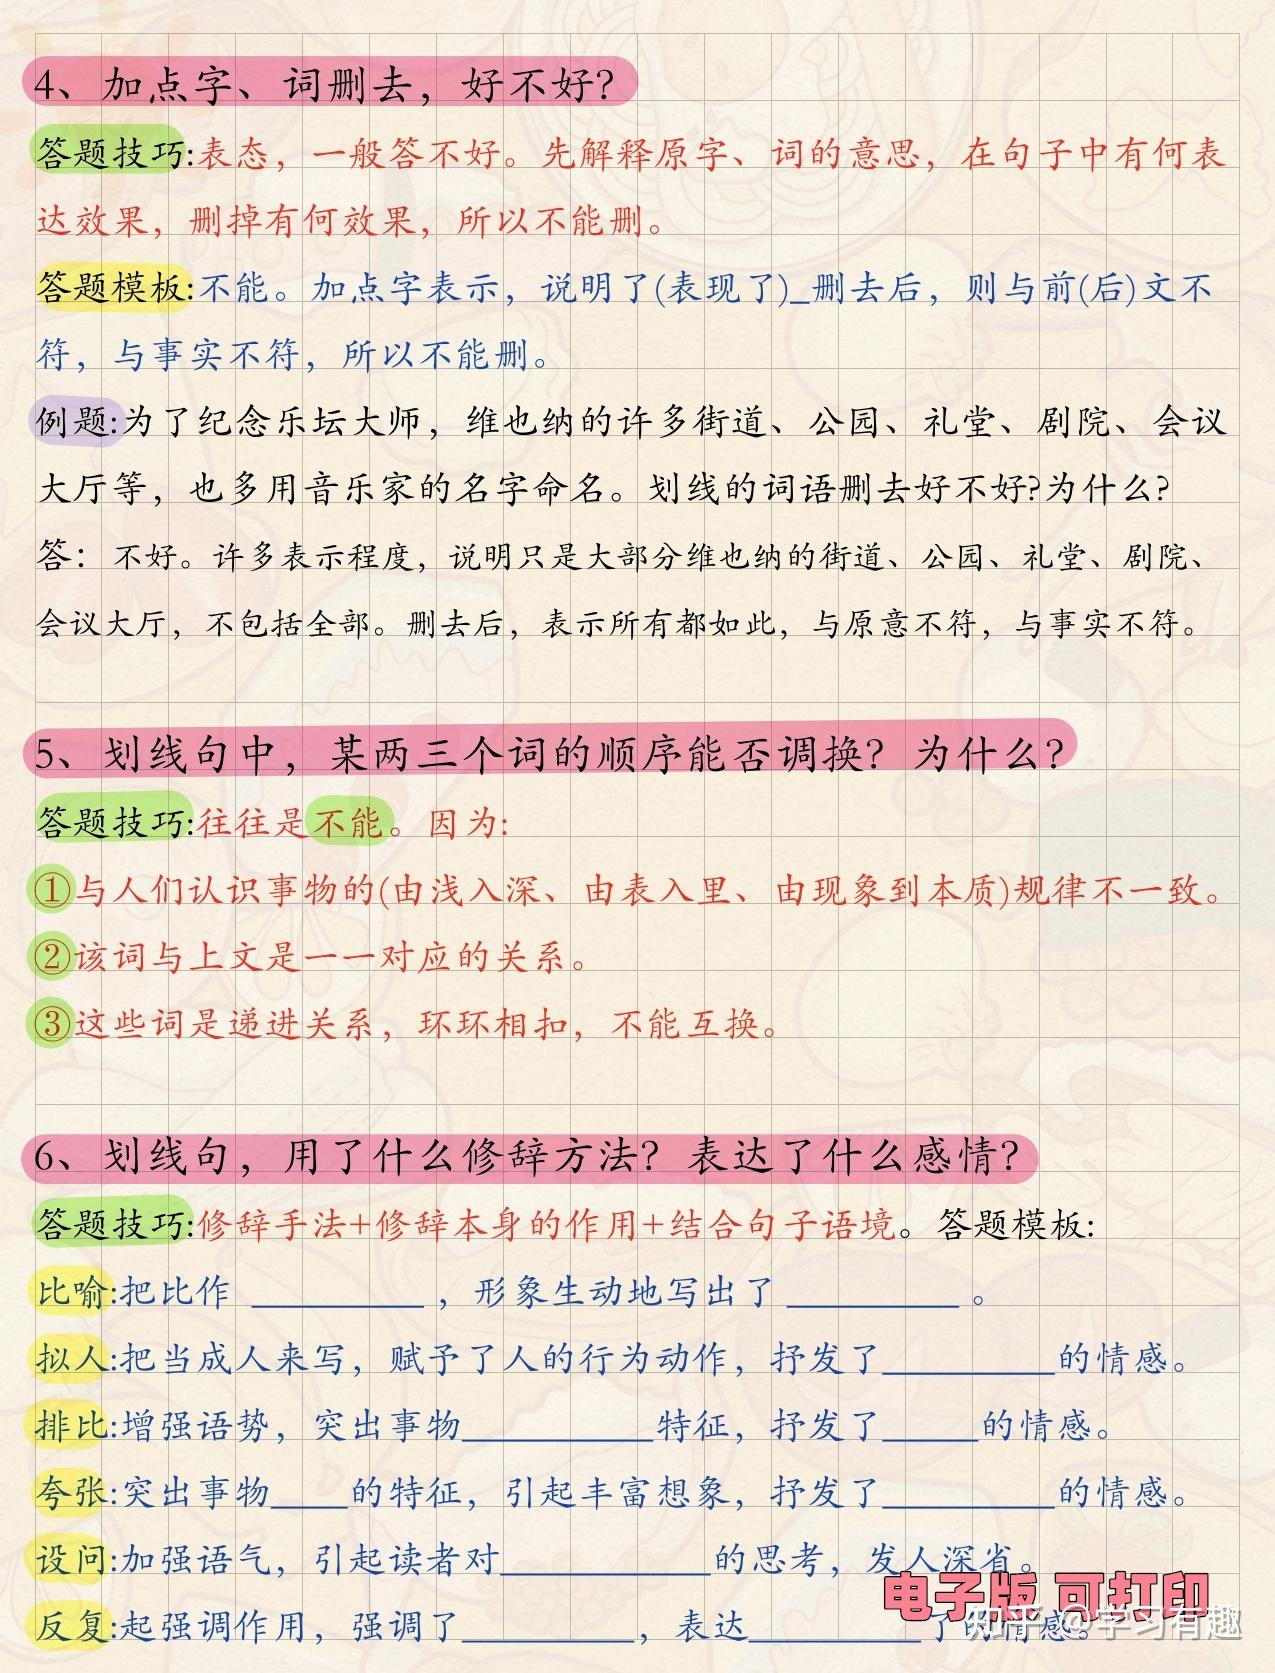 4、加点字、词删去，好不好?
答题技巧:表态，一般答不好。先解释原字、词的意思，在句子中有何表
达效果，删掉有何效果，所以不能删。
答题模板:不能。加点字表示，说明了(表现了)_删去后，则与前(后)文不
符，与事实不符，所以不能删。
例题:为了纪念乐坛大师，维也纳的许多街道、公园、礼堂、剧院、会议
大厅等，也多用音乐家的名字命名。划线的词语删去好不好?为什么?
答：不好。许多表示程度，说明只是大部分维也纳的街道、公园、礼堂、剧院、
会议大厅，不包括全部。删去后，表示所有都如此，与原意不符，与事实不符。
5、划线句中，某两三个词的顺序能否调换？为什么?
答题技巧:往往是不能。因为:
①与人们认识事物的(由浅入深、由表入里、由现象到本质)规律不一致。
②该词与上文是一一对应的关系。
③这些词是递进关系，环环相扣，不能互换。
6、划线句，用了什么修辞方法？表达了什么感情?
答题技巧:修辞手法+修辞本身的作用+结合句子语境。答题模板:
比喻:把比作 _________ ，形象生动地写出了 _________ 。
拟人:把当成人来写，赋予了人的行为动作，抒发了_________的情感。
排比:增强语势，突出事物__________特征，抒发了_____的情感。
夸张:突出事物____的特征，引起丰富想象，抒发了_________的情感。
设问:加强语气，引起读者对___________的思考，发人深省。
反复:起强调作用，强调了_________，表达_________了的情感。
电子版 可打印
知乎 @学习有趣